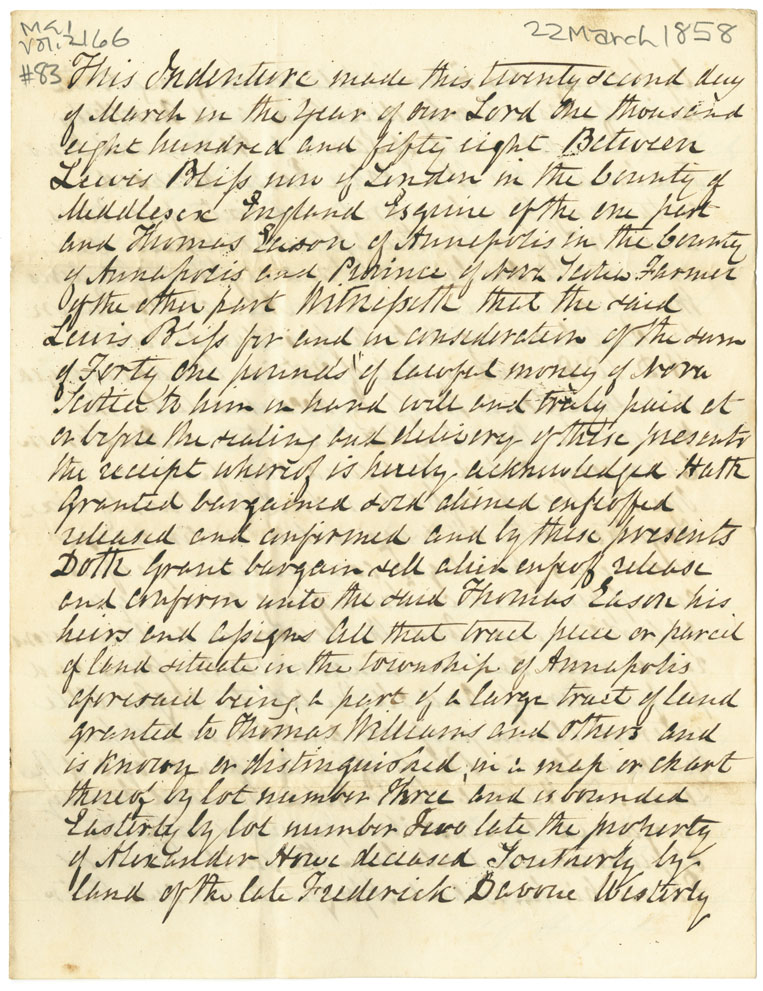 MG1
Vol. 2166
#83
22 March 1858
This Indenture made this twenty second day
of March in the Year of our Lord One thousand
eight hundred and fifty eight Between
Lewis Bliss now of London in the County of
Middlesex England Esquire of the one part
and Thomas Eason of Annapolis in the County
of Annapolis and Province of Nova Scotia Farmer
of the other part Witnesseth that the said
Lewis Bliss for and in consideration of the sum
of Forty One pounds of lawful money of Nova
Scotia to him in hand well and truly paid at
or before the sealing and delivery of these presents
the receipt whereof is hereby acknowledged Hath
Granted bargained sold aliened enfeoffed
released and confirmed and by these presents
Doth Grant bargain sell alien enfeof release
and confirm unto the said Thomas Eason his
heirs and assigns All that tract piece or parcel
of land situate in the township of Annapolis
aforesaid being a part of a large tract of land
granted to Thomas Williams and others and
is known or distinguished in a map or chart
thereof by lot number Three and is bounded
Easterly by lot number Two late the property
of Alexander Howe deceased Southerly by
land of the late Frederick Davoue Westerly